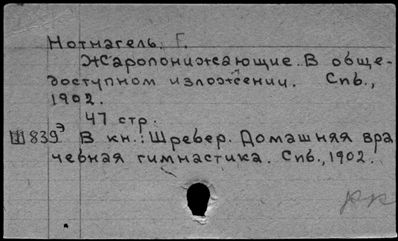 Нотнагель, Г.
Жаропонижающие. В обще-
доступном изложении. Спб.,
1902.
47 стр.
Ш839э В кн.: Шребер. Домашняя вра
чебная гимнастика. Спб., 1902.
рр